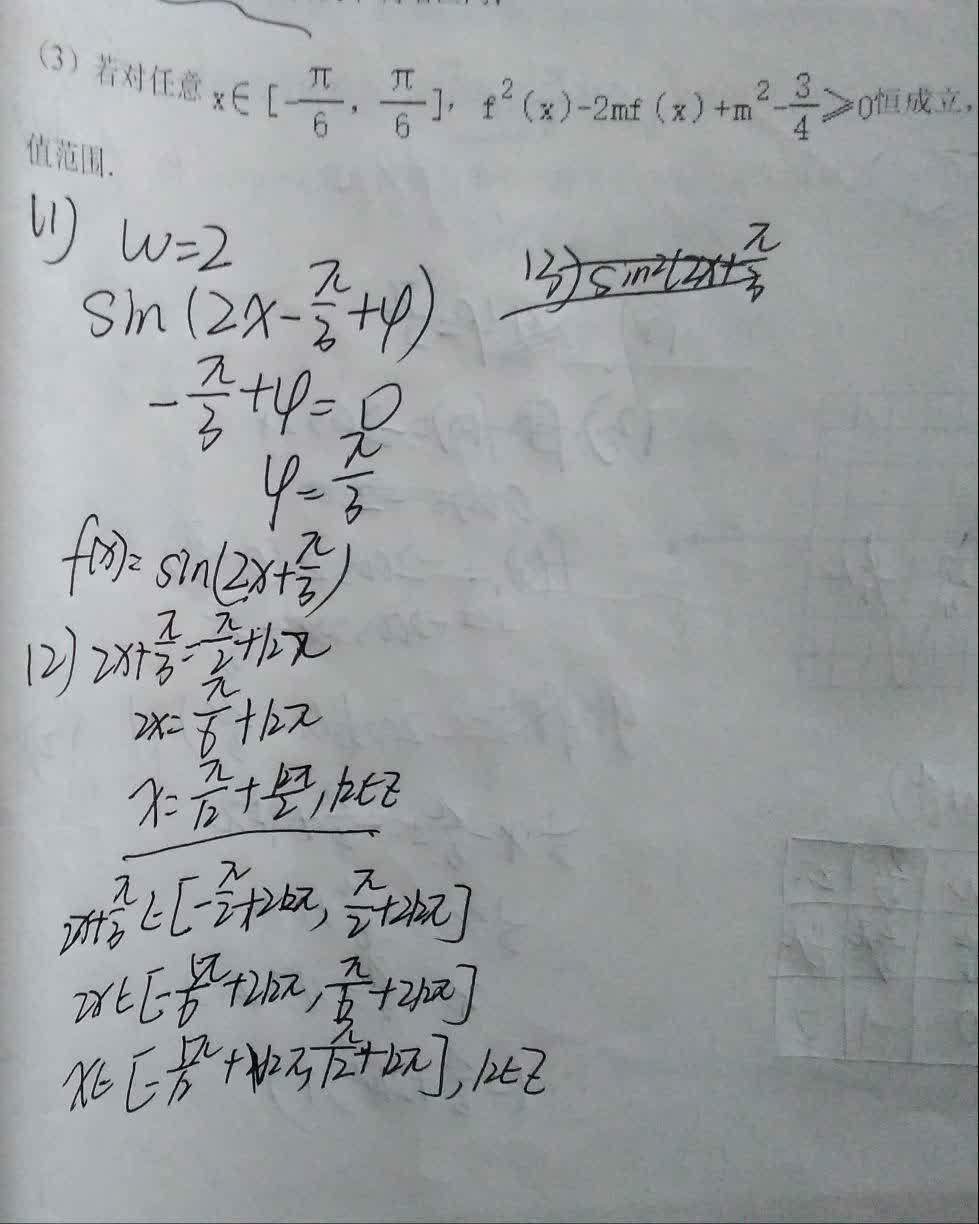 (3) 若对任意 x∈[-π/6, π/6], f²(x)-2mf(x)+m²-3/4≥0恒成立,
值范围.
(1) w=2
sin(2x-π/3+φ)
-π/3+φ=0
φ=π/3
f(x)=sin(2x+π/3)
(2) 2x+π/3=π/2+kπ
2x=π/6+kπ
x=π/12+kπ/2, k∈Z
2x+π/3∈[-π/2+2kπ, π/2+2kπ]
2x∈[-5π/6+2kπ, π/6+2kπ]
x∈[-5π/12+kπ, π/12+kπ], k∈Z
(3) sin²(2x+π/3